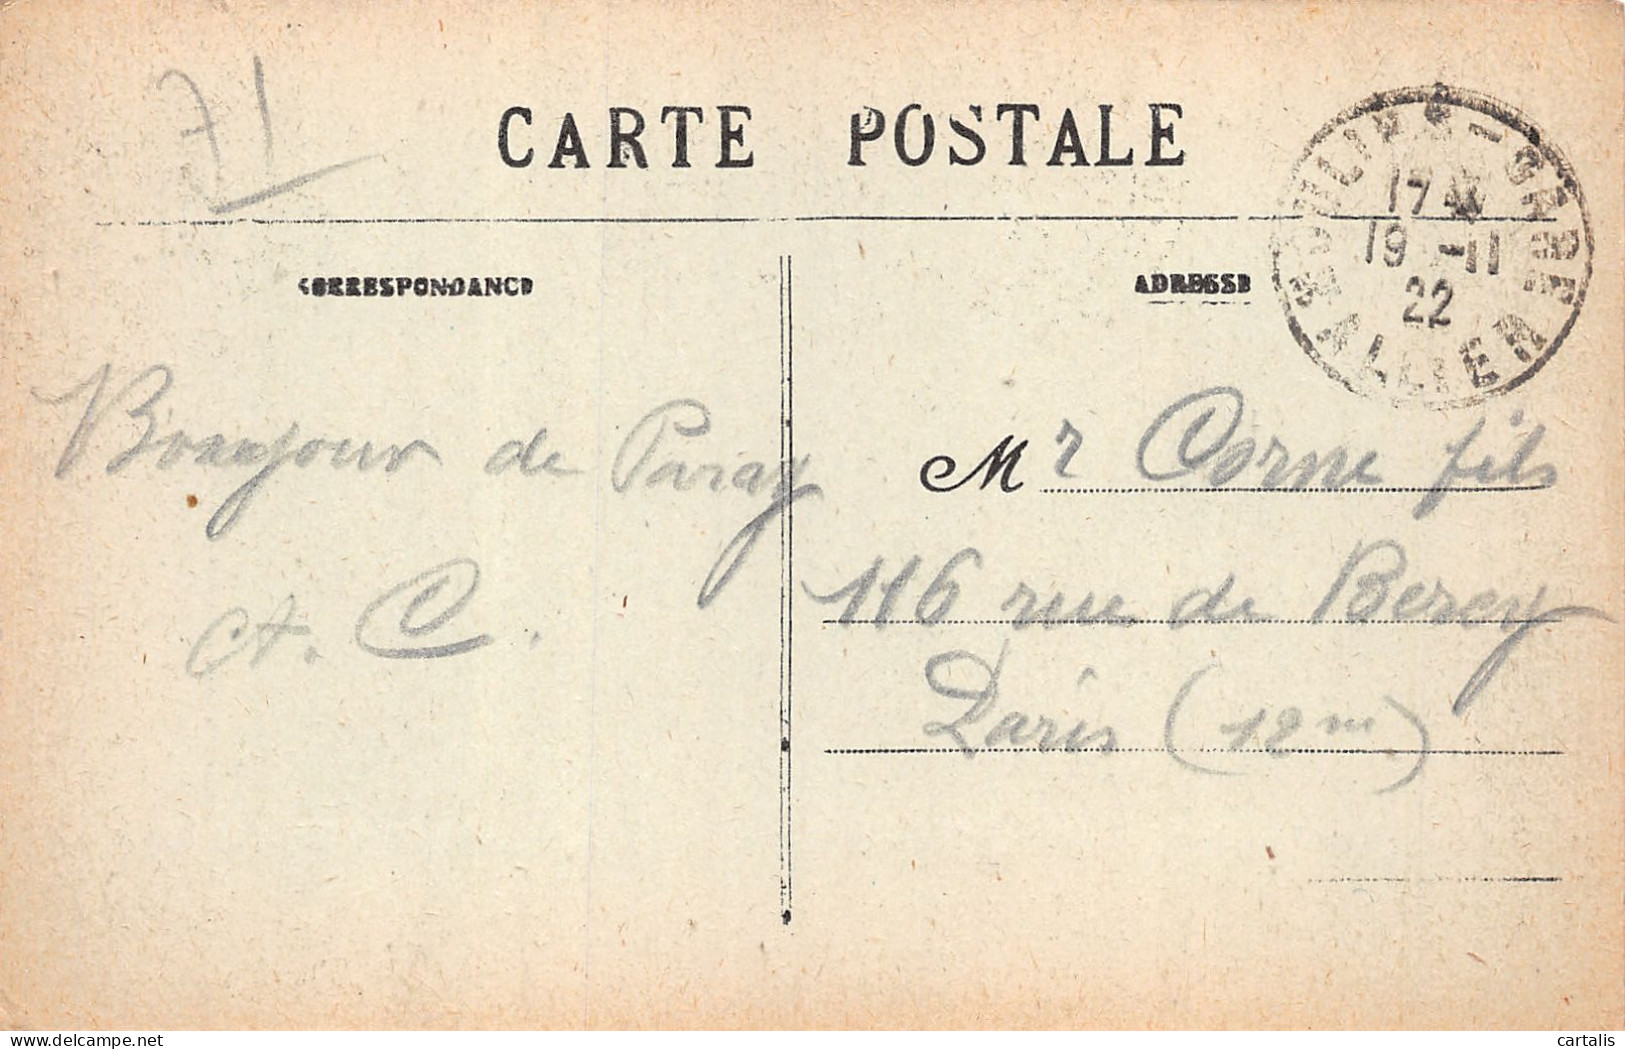 71
CARTE POSTALE
MOULINS-GARE
17
19 -11
22
ALLIER
CORRESPONDANCE
ADRESSE
Bonjour de Paray
A. C.
Mr Corne fils
116 rue de Bercy
Paris (12m.)
delcampe.net
cartalis